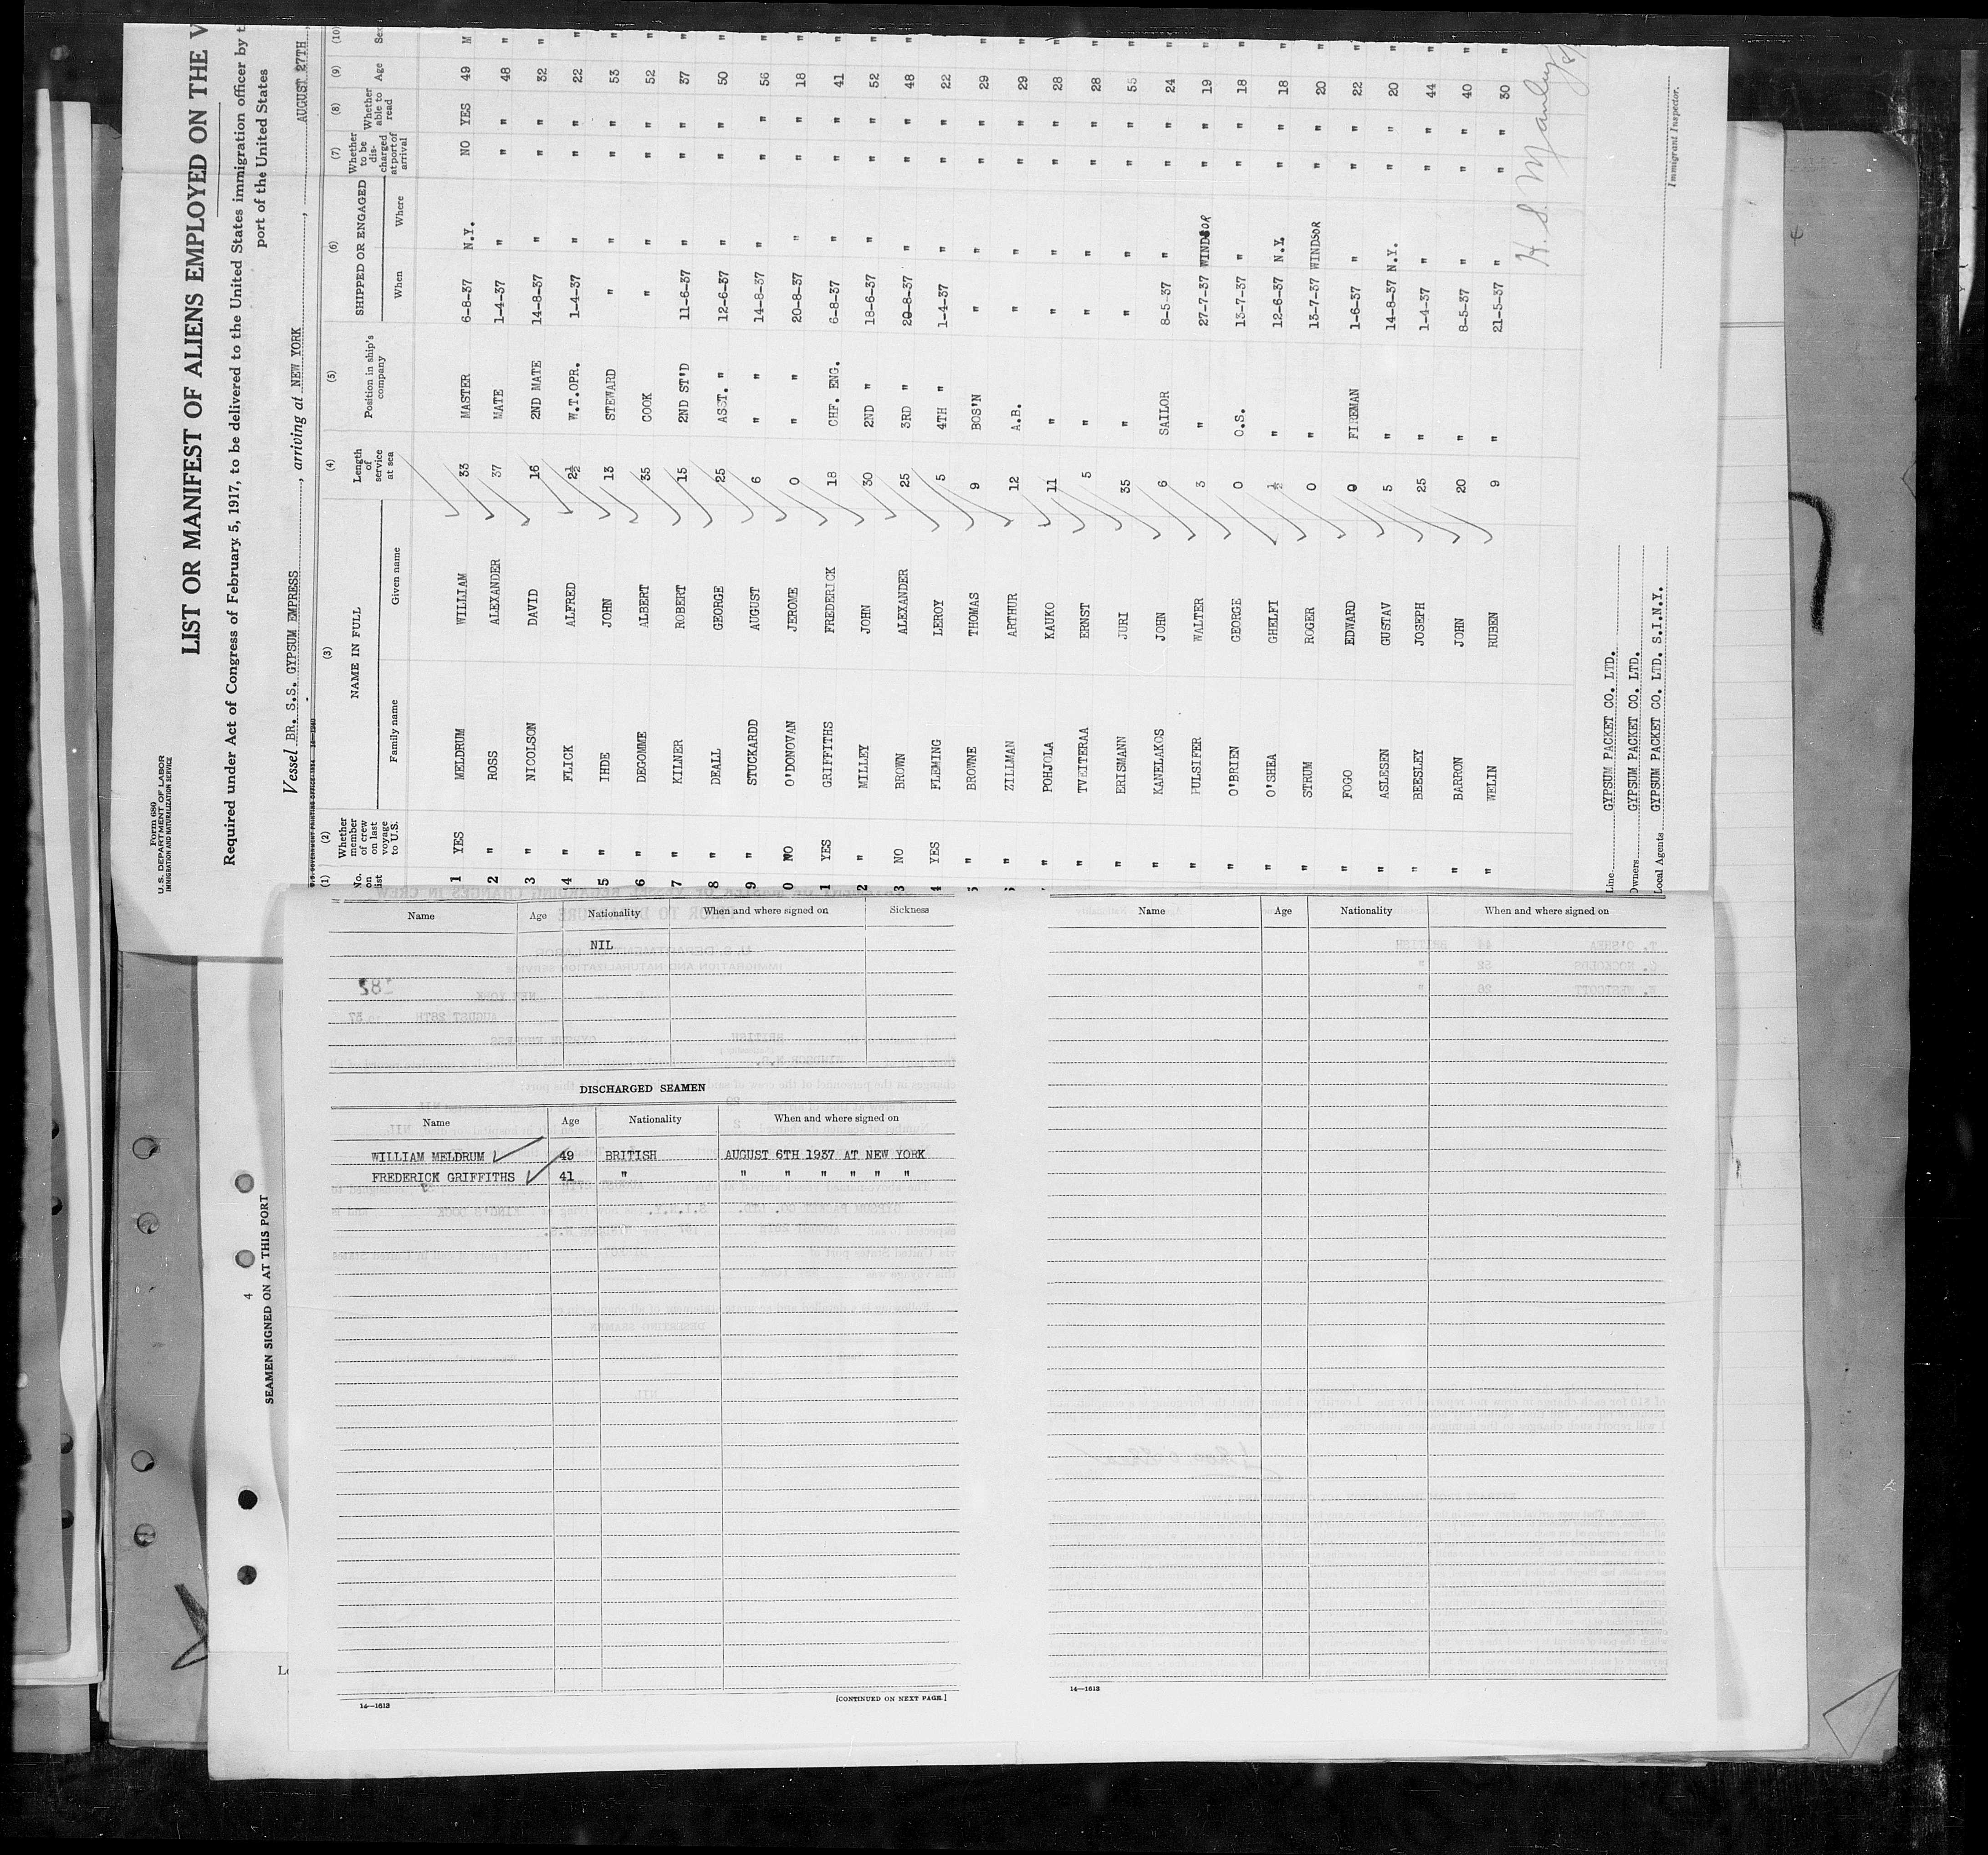 Form 680
U.S. DEPARTMENT OF LABOR
IMMIGRATION AND NATURALIZATION SERVICE
LIST OR MANIFEST OF ALIENS EMPLOYED ON THE V
Required under Act of Congress of February 5, 1917, to be delivered to the United States immigration officer by t
port of the United States
Vessel BR. S.S. GYPSUM EMPRESS, arriving at NEW YORK, AUGUST 27TH,
(1) (2) (3) (4) (5) (6) (7) (8) (9) (10)
No. on list Whether member of crew on last voyage to U.S. NAME IN FULL Family name Given name Length of service at sea Position in ship's company SHIPPED OR ENGAGED When Where Whether to be discharged at port of arrival Whether able to read Age Sex
1 YES MELDRUM WILLIAM 33 MASTER 6-8-37 N.Y. NO YES 49 M
2 " ROSS ALEXANDER 37 MATE 1-4-37 " " " 48 "
3 " NICOLSON DAVID 16 2ND MATE 14-8-37 " " " 32 "
4 " FLICK ALFRED 2½ W.T.OPR. 1-4-37 " " " 22 "
5 " IHDE JOHN 13 STEWARD " " " " 53 "
6 " DEGOMME ALBERT 35 COOK " " " " 52 "
7 " KILNER ROBERT 15 2ND ST'D 11-6-37 " " " 37 "
8 " DEALL GEORGE 25 ASST. " 12-6-37 " " " 50 "
9 " STUCKARDD AUGUST 6 " " 14-8-37 " " " 56 "
0 NO O'DONOVAN JEROME 0 " " 20-8-37 " " " 18 "
1 YES GRIFFITHS FREDERICK 18 CHF. ENG. 6-8-37 " " " 41 "
2 " MILLEY JOHN 30 2ND " 18-6-37 " " " 52 "
3 NO BROWN ALEXANDER 25 3RD " 20-8-37 " " " 48 "
4 YES FLEMING LEROY 5 4TH " 1-4-37 " " " 22 "
5 " BROWNE THOMAS 9 BOS'N " " " " 29 "
" ZILLMAN ARTHUR 12 A.B. " " " " 29 "
" POHJOLA KAUKO 11 " " " " " 28 "
" TVEITERAA ERNST 5 " " " " " 28 "
" ERISMANN JURI 35 " " " " " 55 "
" KANELAKOS JOHN 6 SAILOR 8-5-37 " " " 24 "
" PULSIFER WALTER 3 " 27-7-37 WINDSOR " " 19 "
" O'BRIEN GEORGE 0 O.S. 13-7-37 " " " 18 "
" O'SHEA GHELFI ½ " 12-6-37 N.Y. " " 18 "
" STRUM ROGER 0 " 13-7-37 WINDSOR " " 20 "
" FOGO EDWARD 0 FIREMAN 1-6-37 " " " 22 "
" ASLESEN GUSTAV 5 " 14-8-37 N.Y. " " 20 "
" BEESLEY JOSEPH 25 " 1-4-37 " " " 44 "
" BARRON JOHN 20 " 8-5-37 " " " 40 "
" WELIN RUBEN 9 " 21-5-37 " " " 30 "
H. S. Manley
Immigrant Inspector.
Line GYPSUM PACKET CO. LTD.
Owners GYPSUM PACKET CO. LTD.
Local Agents GYPSUM PACKET CO. LTD. S.I.N.Y.
4
SEAMEN SIGNED ON AT THIS PORT
Name Age Nationality When and where signed on Sickness
NIL
DISCHARGED SEAMEN
Name Age Nationality When and where signed on
WILLIAM MELDRUM 49 BRITISH AUGUST 6TH 1937 AT NEW YORK
FREDERICK GRIFFITHS 41 " " " " " " "
14—1613
[CONTINUED ON NEXT PAGE.]
Name Age Nationality When and where signed on
14—1613